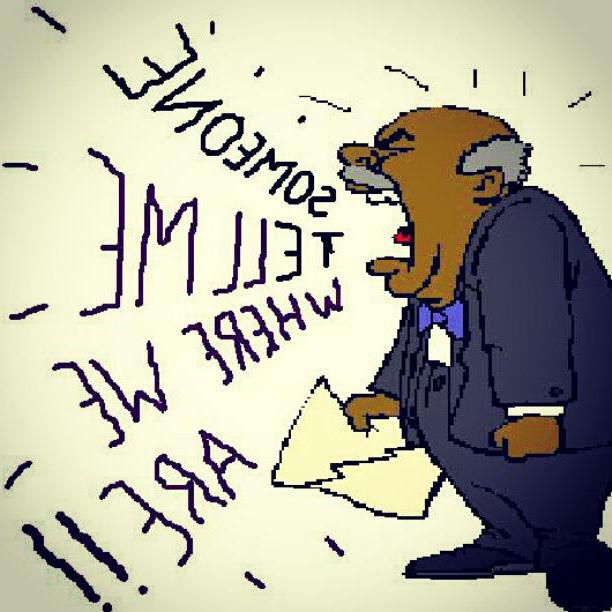 SOMEONE
TELL ME
WHERE WE
ARE!!